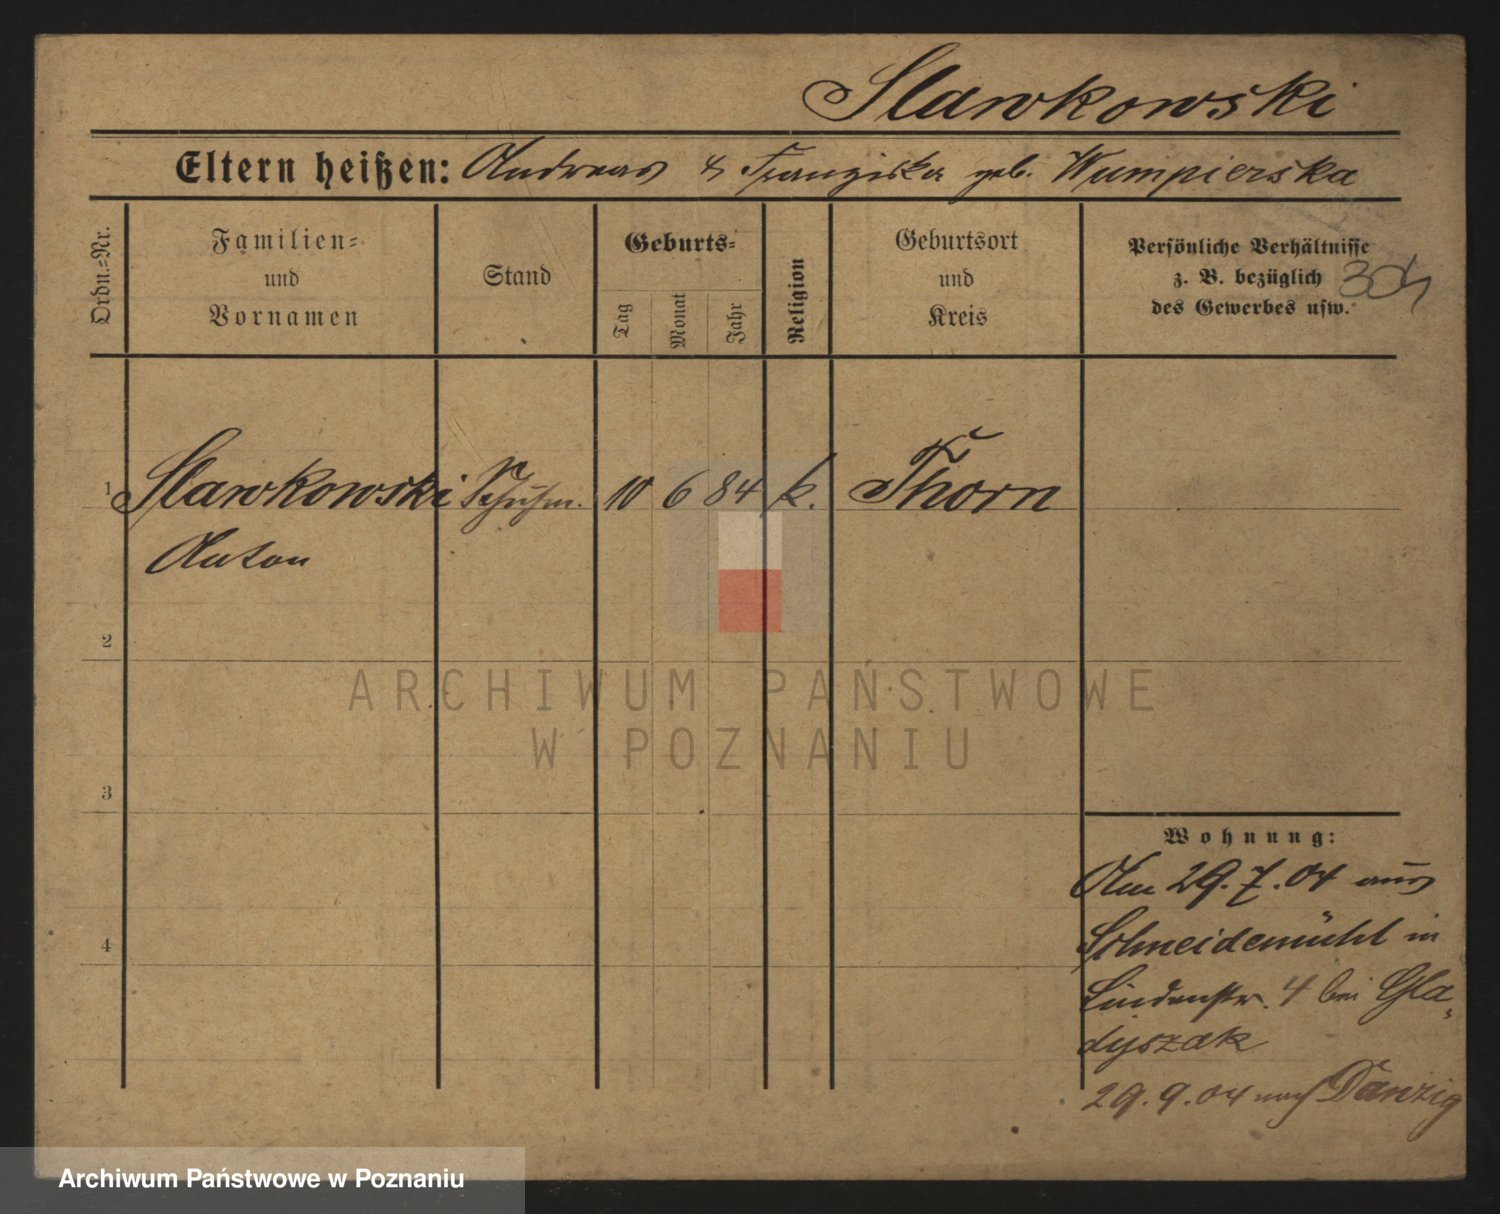 Slawkowski
Eltern heißen: Andreas & Franziska geb. Wumpierska
Ordn.-Nr.
Familien-
und
Vornamen
Stand
Geburts-
Tag
Monat
Jahr
Religion
Geburtsort
und
Kreis
Persönliche Verhältnisse
z. B. bezüglich
des Gewerbes usw.
304
1 Slawkowski Schuhm. 10 6 84 k. Thorn
Anton
2
ARCHIWUM PAŃSTWOWE
W POZNANIU
3
4
Wohnung:
Am 29.7.04 aus
Schneidemühl in
Lindenstr. 4 bei Gla-
dyszak
29.9.04 nach Danzig
Archiwum Państwowe w Poznaniu